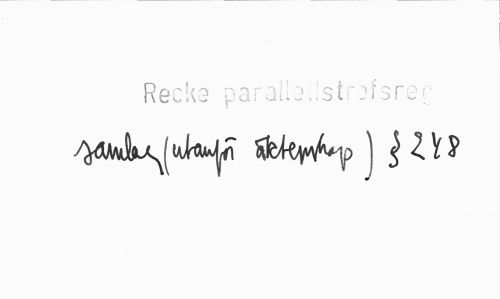 Recke parallellstrofsreg
samlag (utanför äktenskap) § 248